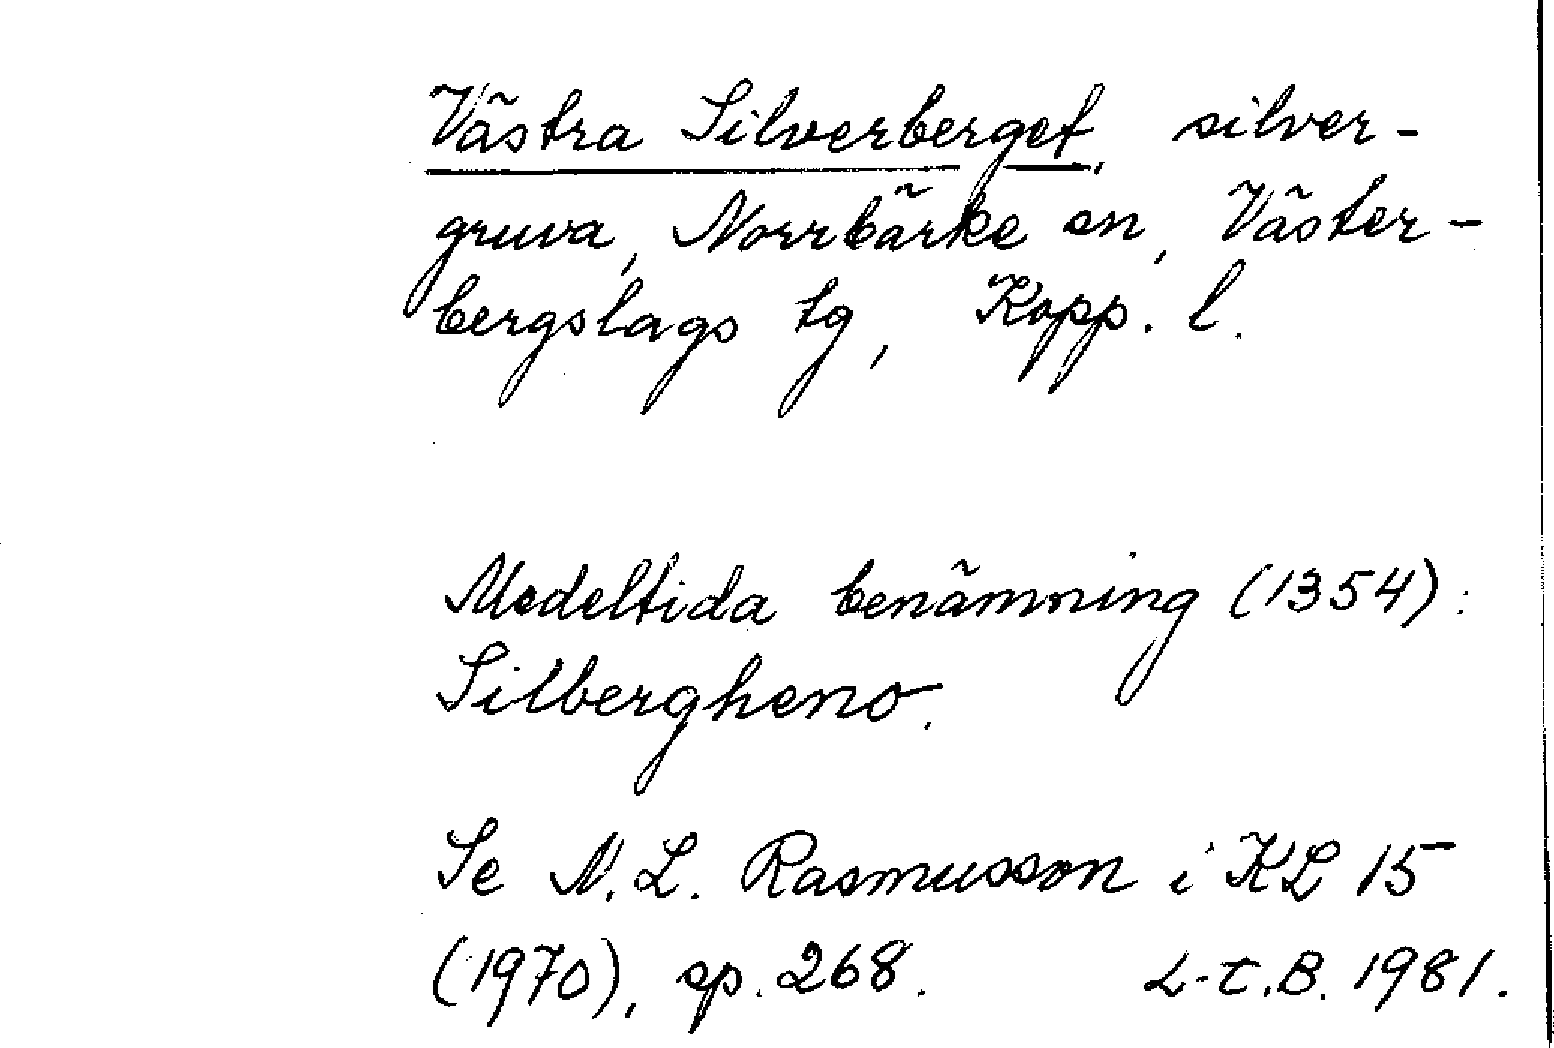 Västra Silverberget, silver-
gruva, Norrbärke sn, Väster-
bergslags tg, Kopp. l.
Medeltida benämning (1354):
Silbergheno.
Se N.L. Rasmusson i KL 15
(1970), sp. 268. L-E.B. 1981.